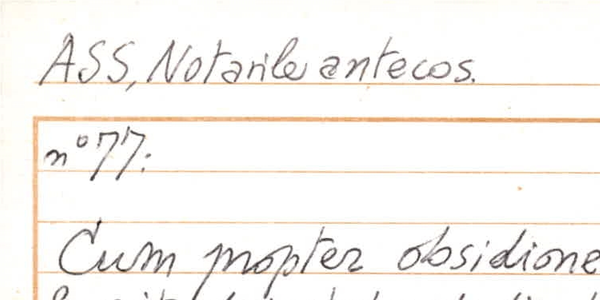 ASS, Notarile antecos.
n° 77:
Cum propter obsidione